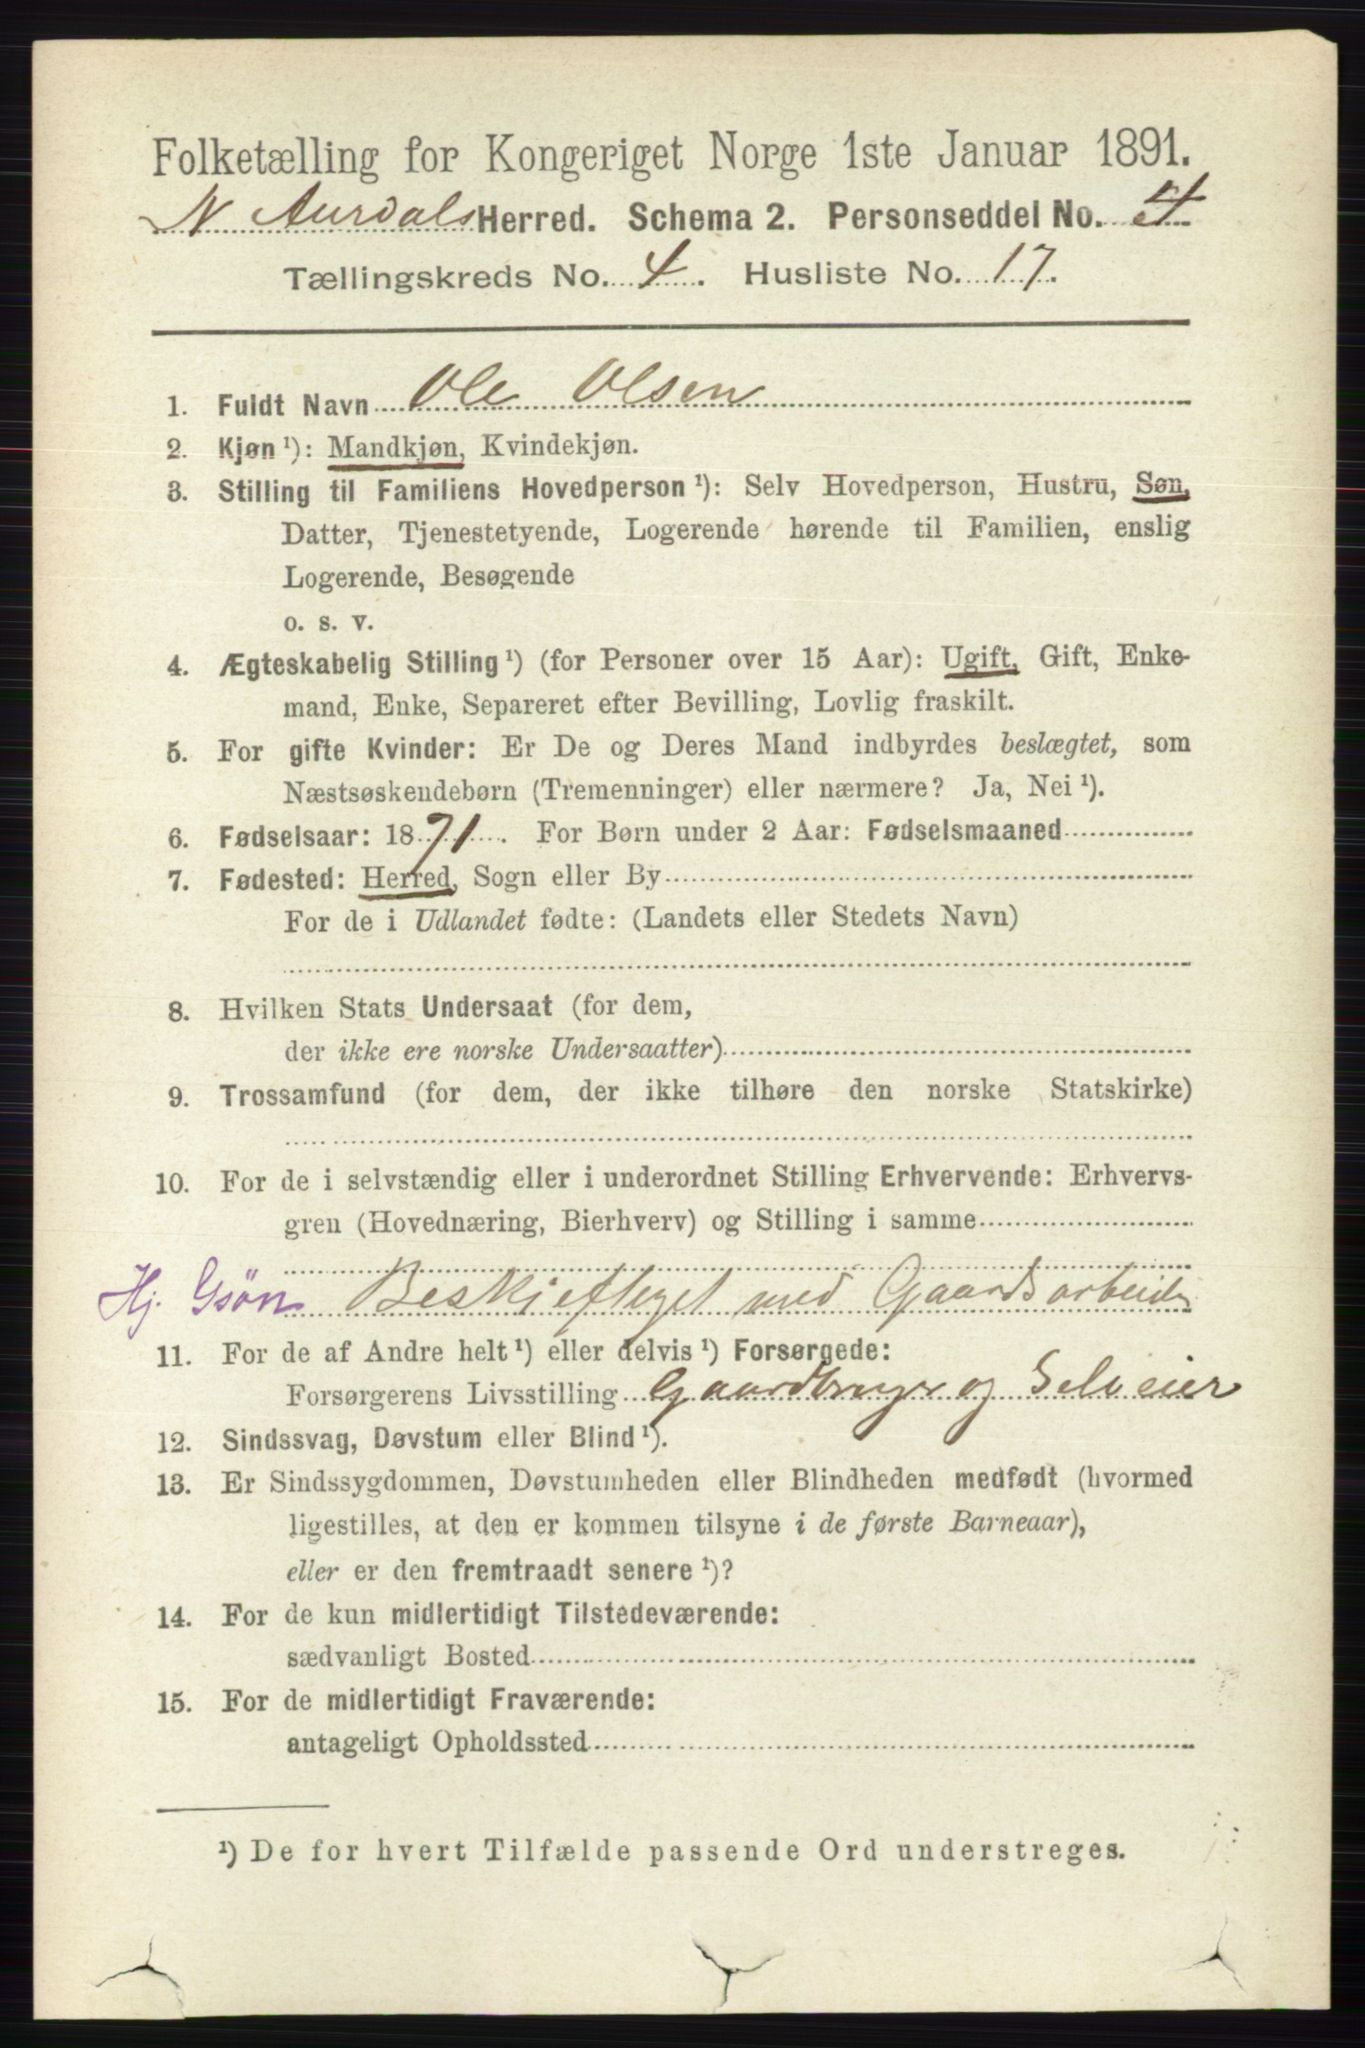 Folketælling for Kongeriget Norge 1ste Januar 1891.
N Aurdals Herred. Schema 2. Personseddel No. 4
Tællingskreds No. 4. Husliste No. 17.
1. Fuldt Navn Ole Olsen
2. Kjøn ¹): Mandkjøn, Kvindekjøn.
3. Stilling til Familiens Hovedperson ¹): Selv Hovedperson, Hustru, Søn,
Datter, Tjenestetyende, Logerende hørende til Familien, enslig
Logerende, Besøgende
o. s. v.
4. Ægteskabelig Stilling ¹) (for Personer over 15 Aar): Ugift, Gift, Enke-
mand, Enke, Separeret efter Bevilling, Lovlig fraskilt.
5. For gifte Kvinder: Er De og Deres Mand indbyrdes beslægtet, som
Næstsøskendebørn (Tremenninger) eller nærmere? Ja, Nei ¹).
6. Fødselsaar: 1871. For Børn under 2 Aar: Fødselsmaaned
7. Fødested: Herred, Sogn eller By
For de i Udlandet fødte: (Landets eller Stedets Navn)
8. Hvilken Stats Undersaat (for dem,
der ikke ere norske Undersaatter)
9. Trossamfund (for dem, der ikke tilhøre den norske Statskirke)
10. For de i selvstændig eller i underordnet Stilling Erhvervende: Erhvervs-
gren (Hovednæring, Bierhverv) og Stilling i samme
Hj. Gsön Beskjeftiget med Gaardsarbeide
11. For de af Andre helt ¹) eller delvis ¹) Forsørgede:
Forsørgerens Livsstilling Gaardbruger og Selveier
12. Sindssvag, Døvstum eller Blind ¹).
13. Er Sindssygdommen, Døvstumheden eller Blindheden medfødt (hvormed
ligestilles, at den er kommen tilsyne i de første Barneaar),
eller er den fremtraadt senere ¹)?
14. For de kun midlertidigt Tilstedeværende:
sædvanligt Bosted
15. For de midlertidigt Fraværende:
antageligt Opholdssted
¹) De for hvert Tilfælde passende Ord understreges.